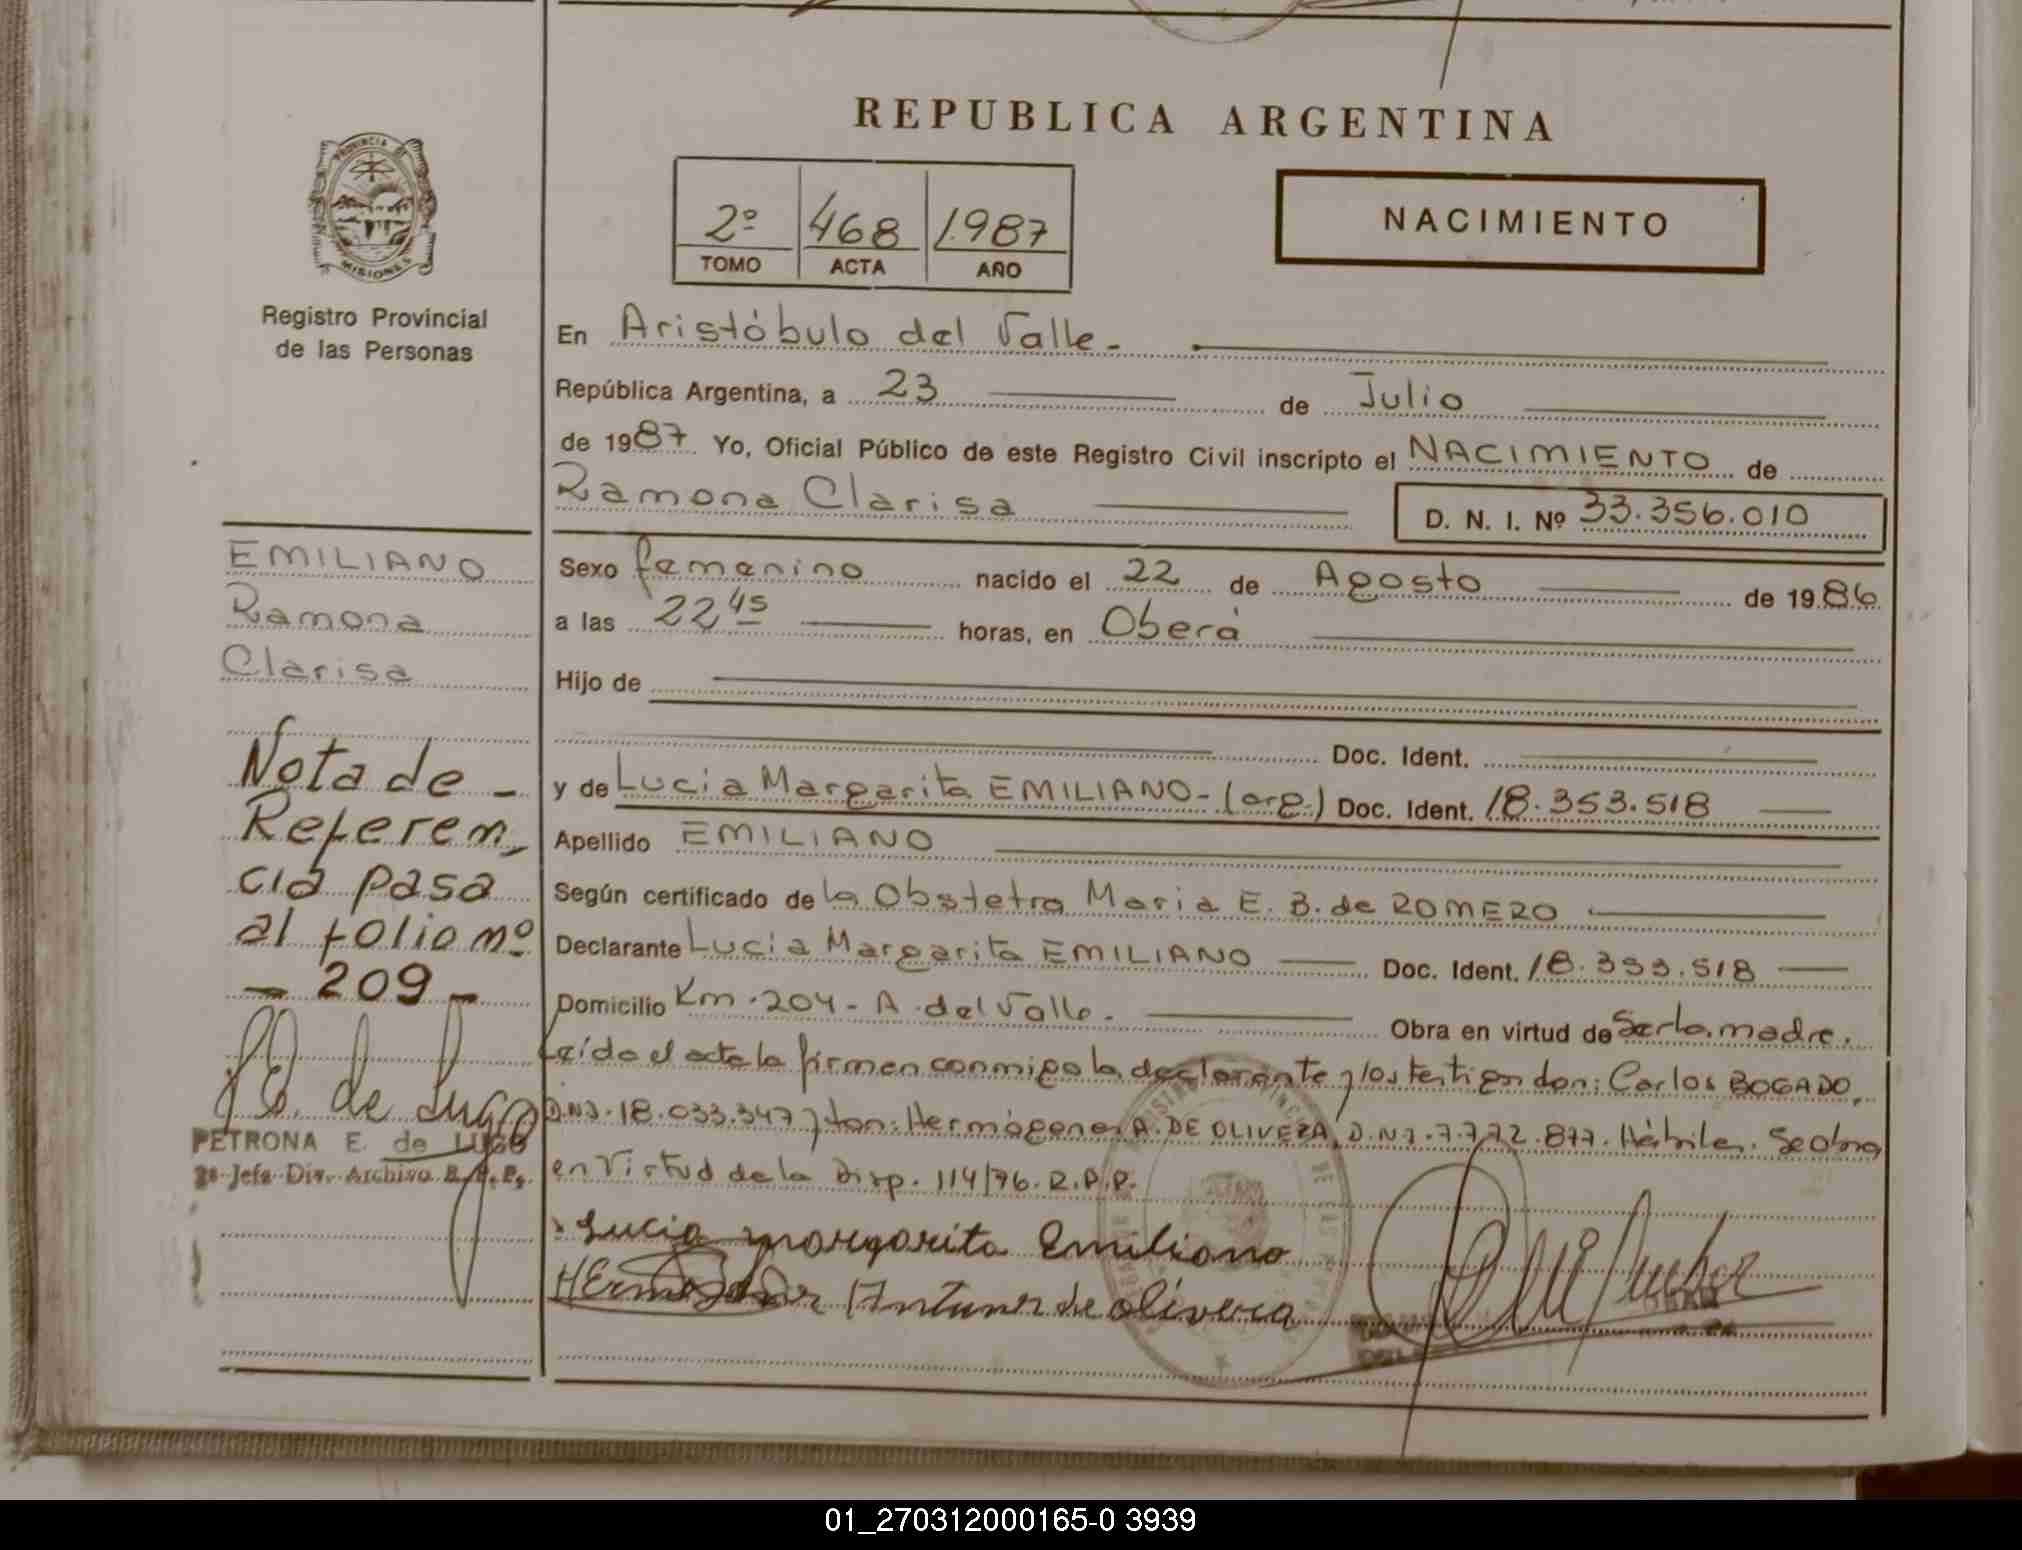 REPUBLICA ARGENTINA
PROVINCIA DE
MISIONES
Registro Provincial
de las Personas
2º 468 1.987
TOMO ACTA AÑO
NACIMIENTO
En Aristóbulo del Valle.-
República Argentina, a 23 de Julio
de 1987 Yo, Oficial Público de este Registro Civil inscripto el NACIMIENTO de
Ramona Clarisa D. N. I. Nº 33.356.010
EMILIANO
Ramona
Clarisa
Sexo femenino nacido el 22 de Agosto de 1986
a las 22 45 horas, en Oberá
Hijo de
Doc. Ident.
y de Lucia Margarita EMILIANO-(arg.) Doc. Ident. 18.353.518
Apellido EMILIANO
Según certificado de la Obstetra Maria E. B. de ROMERO
Declarante Lucia Margarita EMILIANO Doc. Ident. 18.353.518
Domicilio Km. 204 - A. del Valle. Obra en virtud de Ser la madre.
Leída el acta la firman conmigo la declarante y los testigos don: Carlos BOGADO,
D.N.I. 18.033.347 y don: Hermógenes A. DE OLIVERA, D.N.I. 7.772.877. Hábiles. Se obra
en Virtud de la Disp. 114/76. R.P.P.
Lucia margarita Emiliano
Antunes de olivera
Nota de -
Referen
cia pasa
al folio nº
- 209 -
P.E. de Lugo
PETRONA E. de LUGO
2ª Jefa Div. Archivo R.P.P.
01_270312000165-0 3939